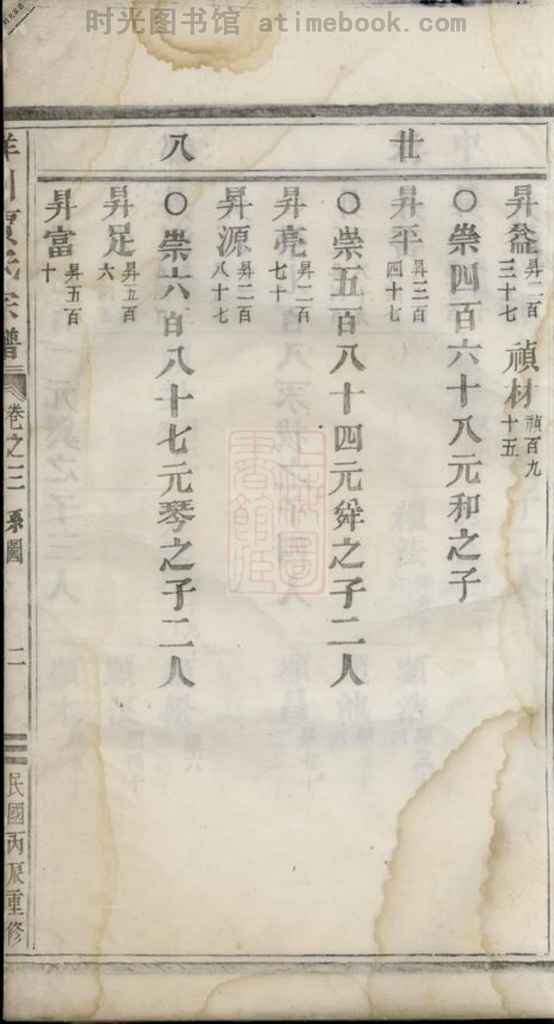 时光图书馆 atimebook.com
廿
八
昇益 昇二百三十七 禎材 禎百九十五
○崇四百六十八元和之子
昇平 昇三百四十七
○崇五百八十四元舜之子二人
昇亮 昇二百七十
昇源 昇二百八十七
○崇六百八十七元琴之子二人
昇足 昇五百六
昇富 昇五百十
宗譜
卷之三
系圖
二
民國丙辰重修